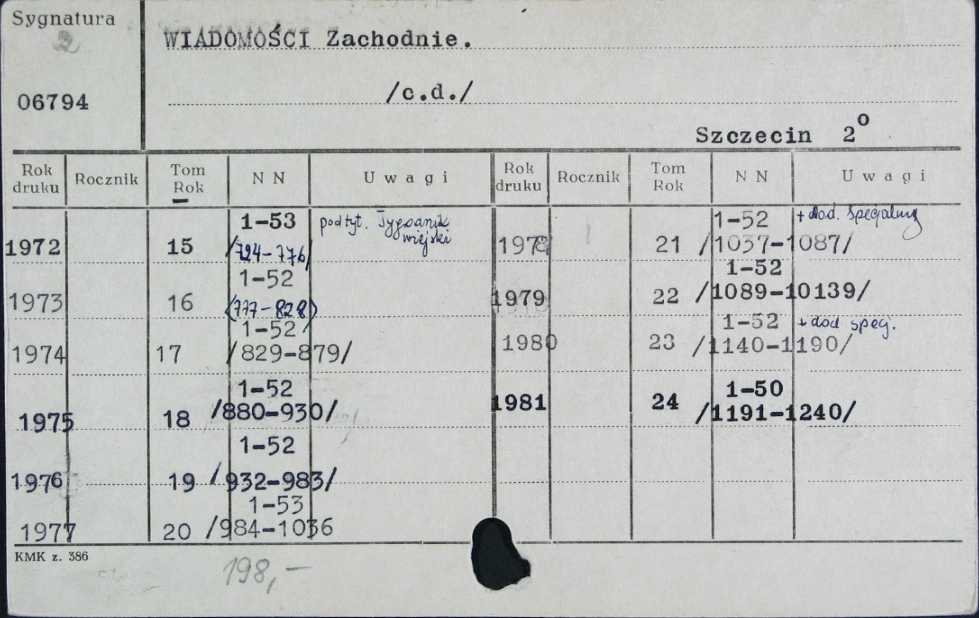 Sygnatura
2
WIADOMOŚCI Zachodnie.
06794
/c.d./
Szczecin 2°
Rok druku Rocznik Tom Rok NN Uwagi Rok druku Rocznik Tom Rok NN Uwagi
1972 15 1-53 /724-776/ podtyt. Tygodnik wiejski
1973 16 1-52 (777-828)
1974 17 1-52 /829-879/
1975 18 1-52 /880-930/
1976 19 1-52 /932-983/
1977 20 1-53 /984-1036
1978 21 1-52 /1037-1087/ + dod. specjalny
1979 22 1-52 /1089-10139/
1980 23 1-52 /1140-1190/ + dod spec.
1981 24 1-50 /1191-1240/
KMK z. 386
198,-